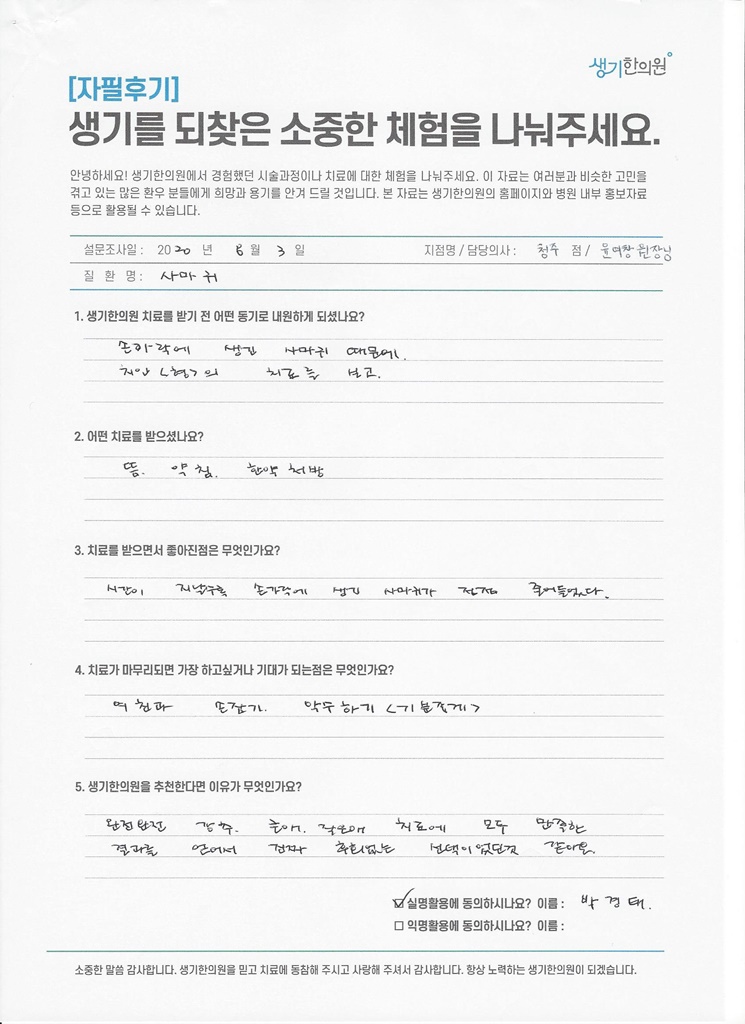 생기한의원
[자필후기]
생기를 되찾은 소중한 체험을 나눠주세요.
안녕하세요! 생기한의원에서 경험했던 시술과정이나 치료에 대한 체험을 나눠주세요. 이 자료는 여러분과 비슷한 고민을
겪고 있는 많은 환우 분들에게 희망과 용기를 안겨 드릴 것입니다. 본 자료는 생기한의원의 홈페이지와 병원 내부 홍보자료
등으로 활용될 수 있습니다.
설문조사일 : 2020 년 6월 3 일 지점명 / 담당의사 : 청주 점 / 원장님
질 환 명 : 사마귀
1. 생기한의원 치료를 받기 전 어떤 동기로 내원하게 되셨나요?
손가락에 생긴 사마귀 때문에.
지인<형>의 치료를 보고.
2. 어떤 치료를 받으셨나요?
뜸. 약침. 한약처방
3. 치료를 받으면서 좋아진점은 무엇인가요?
시간이 지날수록 손가락에 생긴 사마귀가 점점 줄어들었다.
4. 치료가 마무리되면 가장 하고싶거나 기대가 되는점은 무엇인가요?
여친과 손잡기. 악수하기 <기분좋게>
5. 생기한의원을 추천한다면 이유가 무엇인가요?
완전완전 강추. 치료에 모두 만족한
결과를 얻어서 진짜 후회없는 선택이었던것 같아요.
실명활용에 동의하시나요? 이름 : 박경태.
익명활용에 동의하시나요? 이름 :
소중한 말씀 감사합니다. 생기한의원을 믿고 치료에 동참해 주시고 사랑해 주셔서 감사합니다. 항상 노력하는 생기한의원이 되겠습니다.